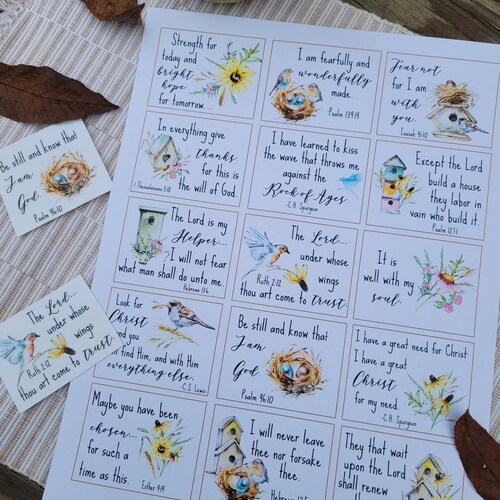 Strength for
today and
bright
hope
for tomorrow...
I am fearfully and
wonderfully
made.
Psalm 139:14
Fear not
for I am
with
you.
Isaiah 41:10
In everything give
thanks
for this is
the will of God.
1 Thessalonians 5:18
I have learned to kiss
the wave that throws me
against the
Rock of Ages
-C.H. Spurgeon
Except the Lord
build a house
they labor in
vain who build it.
Psalm 127:1
The Lord is my
Helper...
I will not fear
what man shall do unto me.
Hebrews 13:6
The Lord...
under whose
wings
Ruth 2:12
thou art come to trust.
It is
well with my
soul.
Look for
Christ
and you
will find Him, and with Him
everything else.
C.S. Lewis
Be still and know that
I am
God
Psalm 46:10
I have a great need for Christ:
I have a great
Christ
for my need.
-C.H. Spurgeon
Maybe you have been
chosen...
for such a
time as this.
Esther 4:14
I will never leave
thee nor forsake
thee.
Hebrews
They that wait
upon the Lord
shall renew
Be still and know that
I am
God
Psalm 46:10
The Lord...
under whose
wings
Ruth 2:12
thou art come to trust